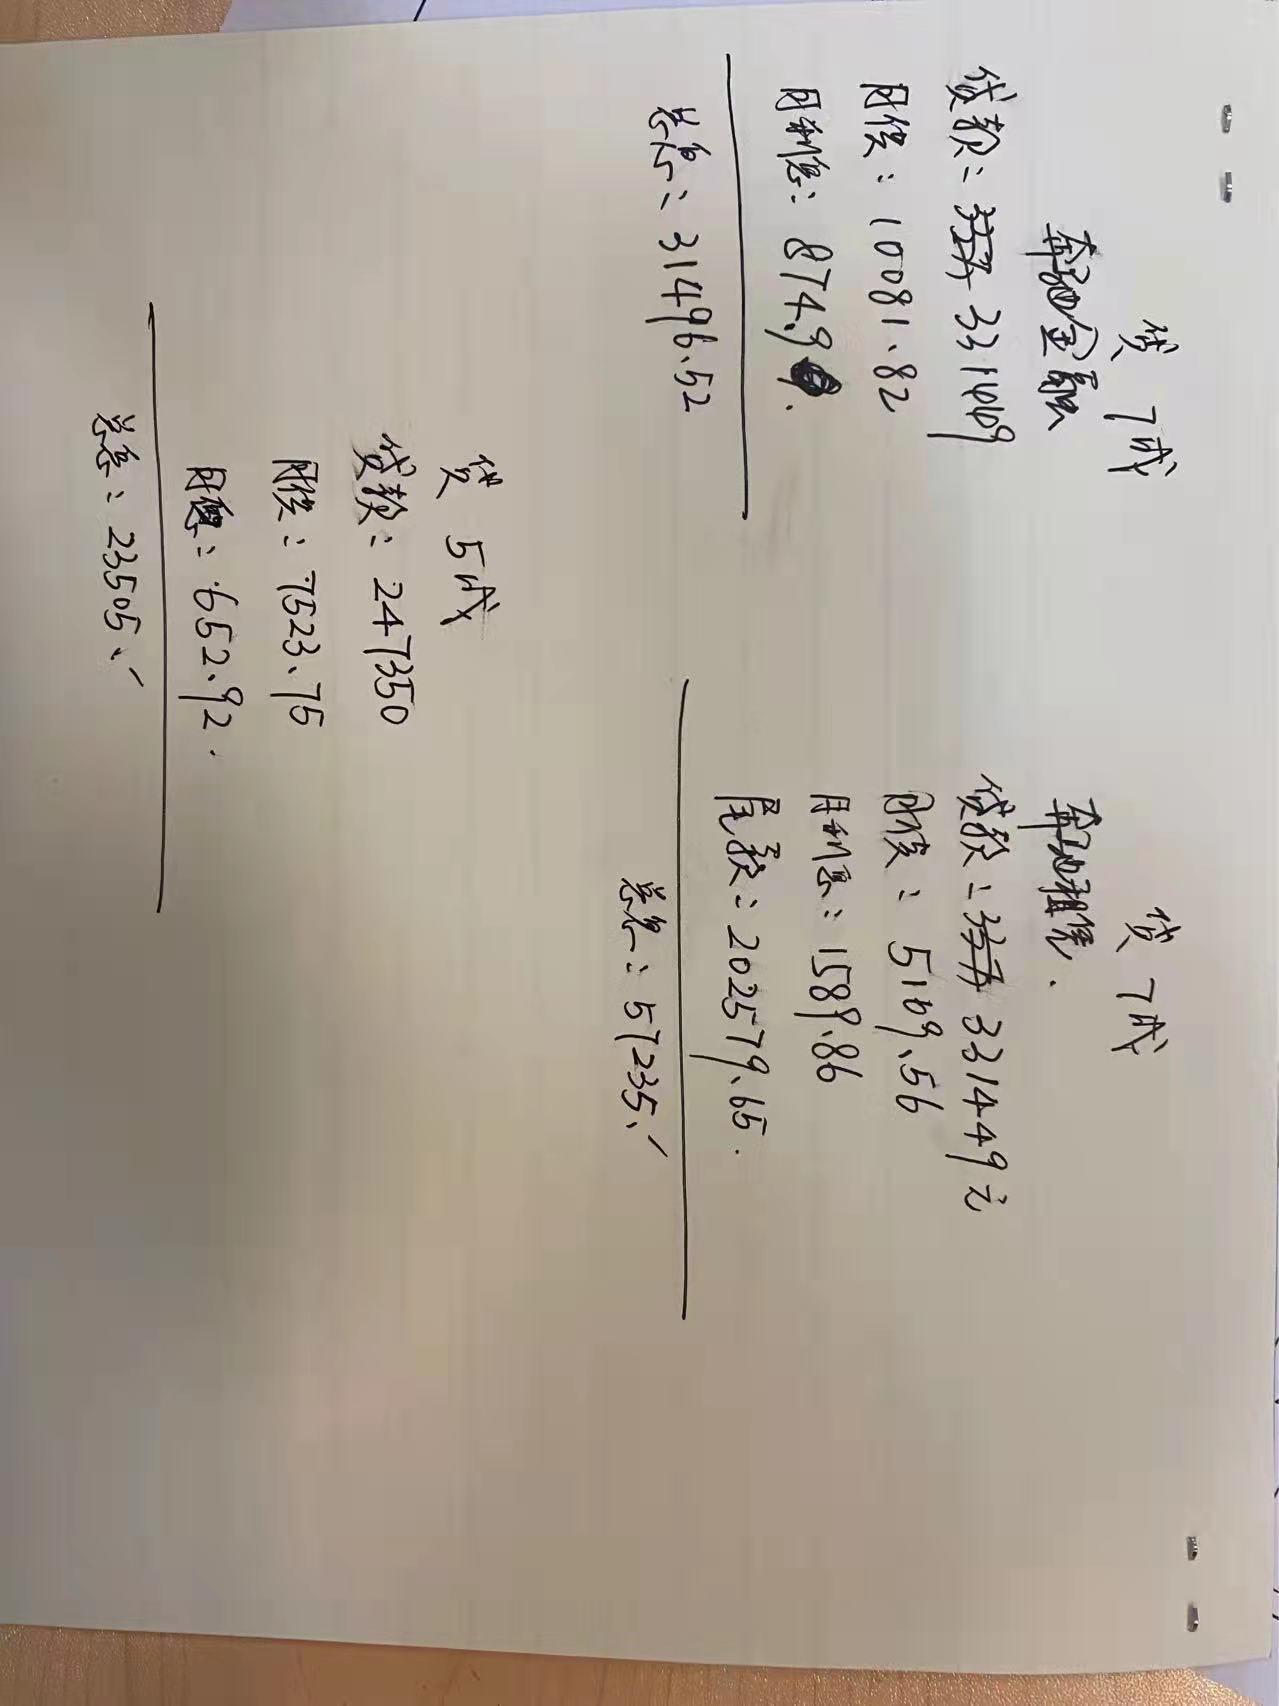 贷 7成
奔驰金融
贷款: 331449
月供: 10081.82
月利息: 874.9
总息: 31496.52
贷 7成
奔驰租赁.
贷款: 331449元
月供: 5169.56
月利息: 1589.86
尾款: 202579.65.
总息: 57235.
贷 5成
贷款: 247350
月供: 7523.75
月息: 652.92.
总息: 23505.